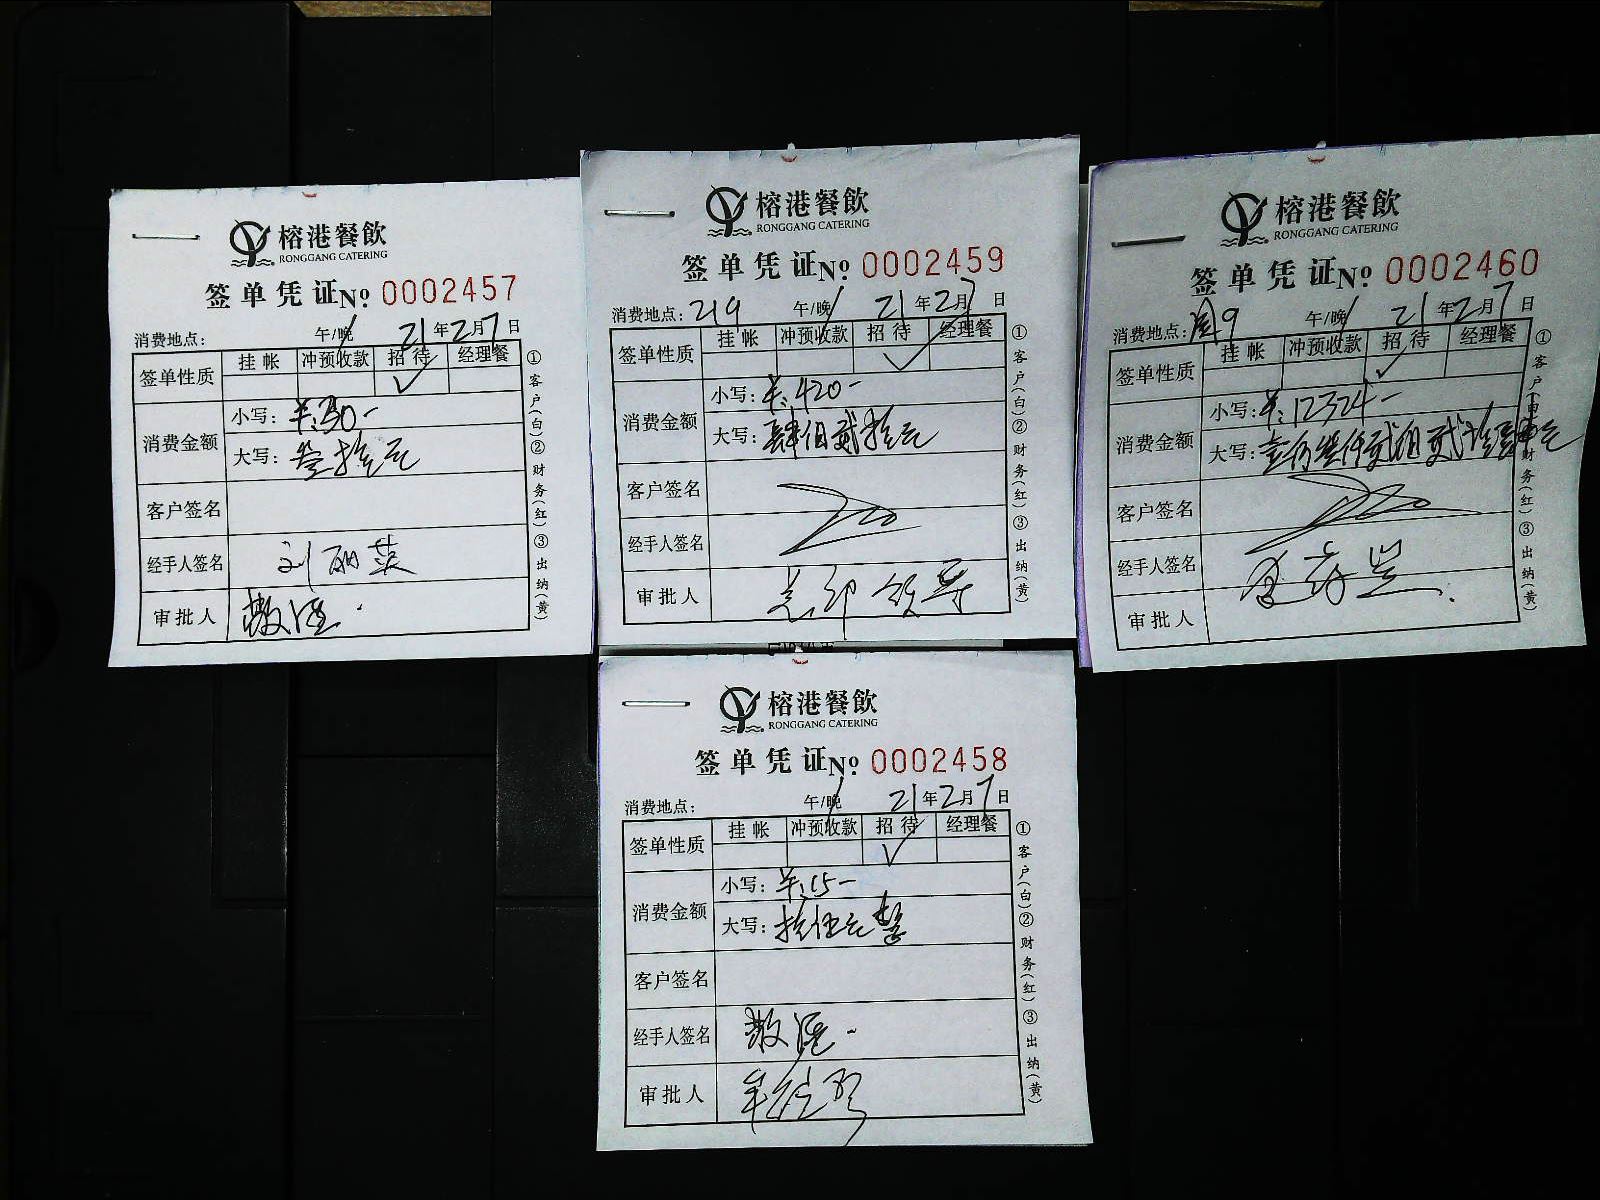 榕港餐飲
RONGGANG CATERING
签单凭证№ 0002457
消费地点： 午/晚 21年2月7日
签单性质 挂帐 冲预收款 招待 经理餐
✓
消费金额 小写：¥:30-
大写：叁拾元
客户签名
经手人签名 刘丽英
审批人
①客户(白)②财务(红)③出纳(黄)
榕港餐飲
RONGGANG CATERING
签单凭证№ 0002459
消费地点：219 午/晚 21年2月7日
签单性质 挂帐 冲预收款 招待 经理餐
✓
消费金额 小写：¥:420-
大写：肆佰贰拾元
客户签名
经手人签名
审批人
①客户(白)②财务(红)③出纳(黄)
榕港餐飲
RONGGANG CATERING
签单凭证№ 0002460
消费地点： 午/晚 21年2月7日
签单性质 挂帐 冲预收款 招待 经理餐
✓
消费金额 小写：¥:12324-
大写：
客户签名
经手人签名
审批人
①客户(白)②财务(红)③出纳(黄)
榕港餐飲
RONGGANG CATERING
签单凭证№ 0002458
消费地点： 午/晚 21年2月7日
签单性质 挂帐 冲预收款 招待 经理餐
✓
消费金额 小写：¥:15-
大写：拾伍元整
客户签名
经手人签名
审批人
①客户(白)②财务(红)③出纳(黄)